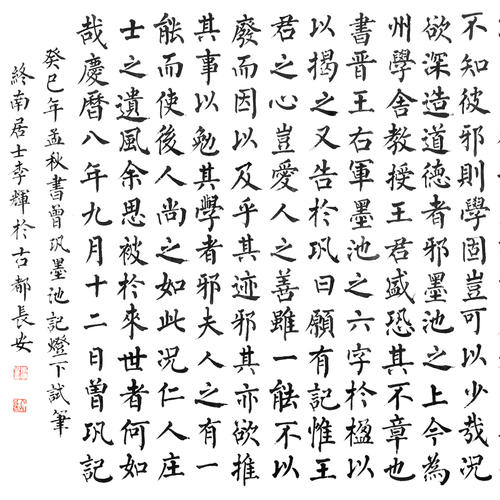 不知彼邪則學固豈可以少哉況
欲深造道德者邪墨池之上今為
州學舍教授王君盛恐其不章也
書晉王右軍墨池之六字於楹以
以揭之又告於巩曰願有記惟王
君之心豈愛人之善雖一能不以
廢而因以及乎其迹邪其亦欲推
其事以勉其學者邪夫人之有一
能而使後人尚之如此況仁人庄
士之遺風余思被於來世者何如
哉慶曆八年九月十二日曾巩記
癸巳年孟秋書曾巩墨池記燈下試筆
終南居士李輝於古都長安